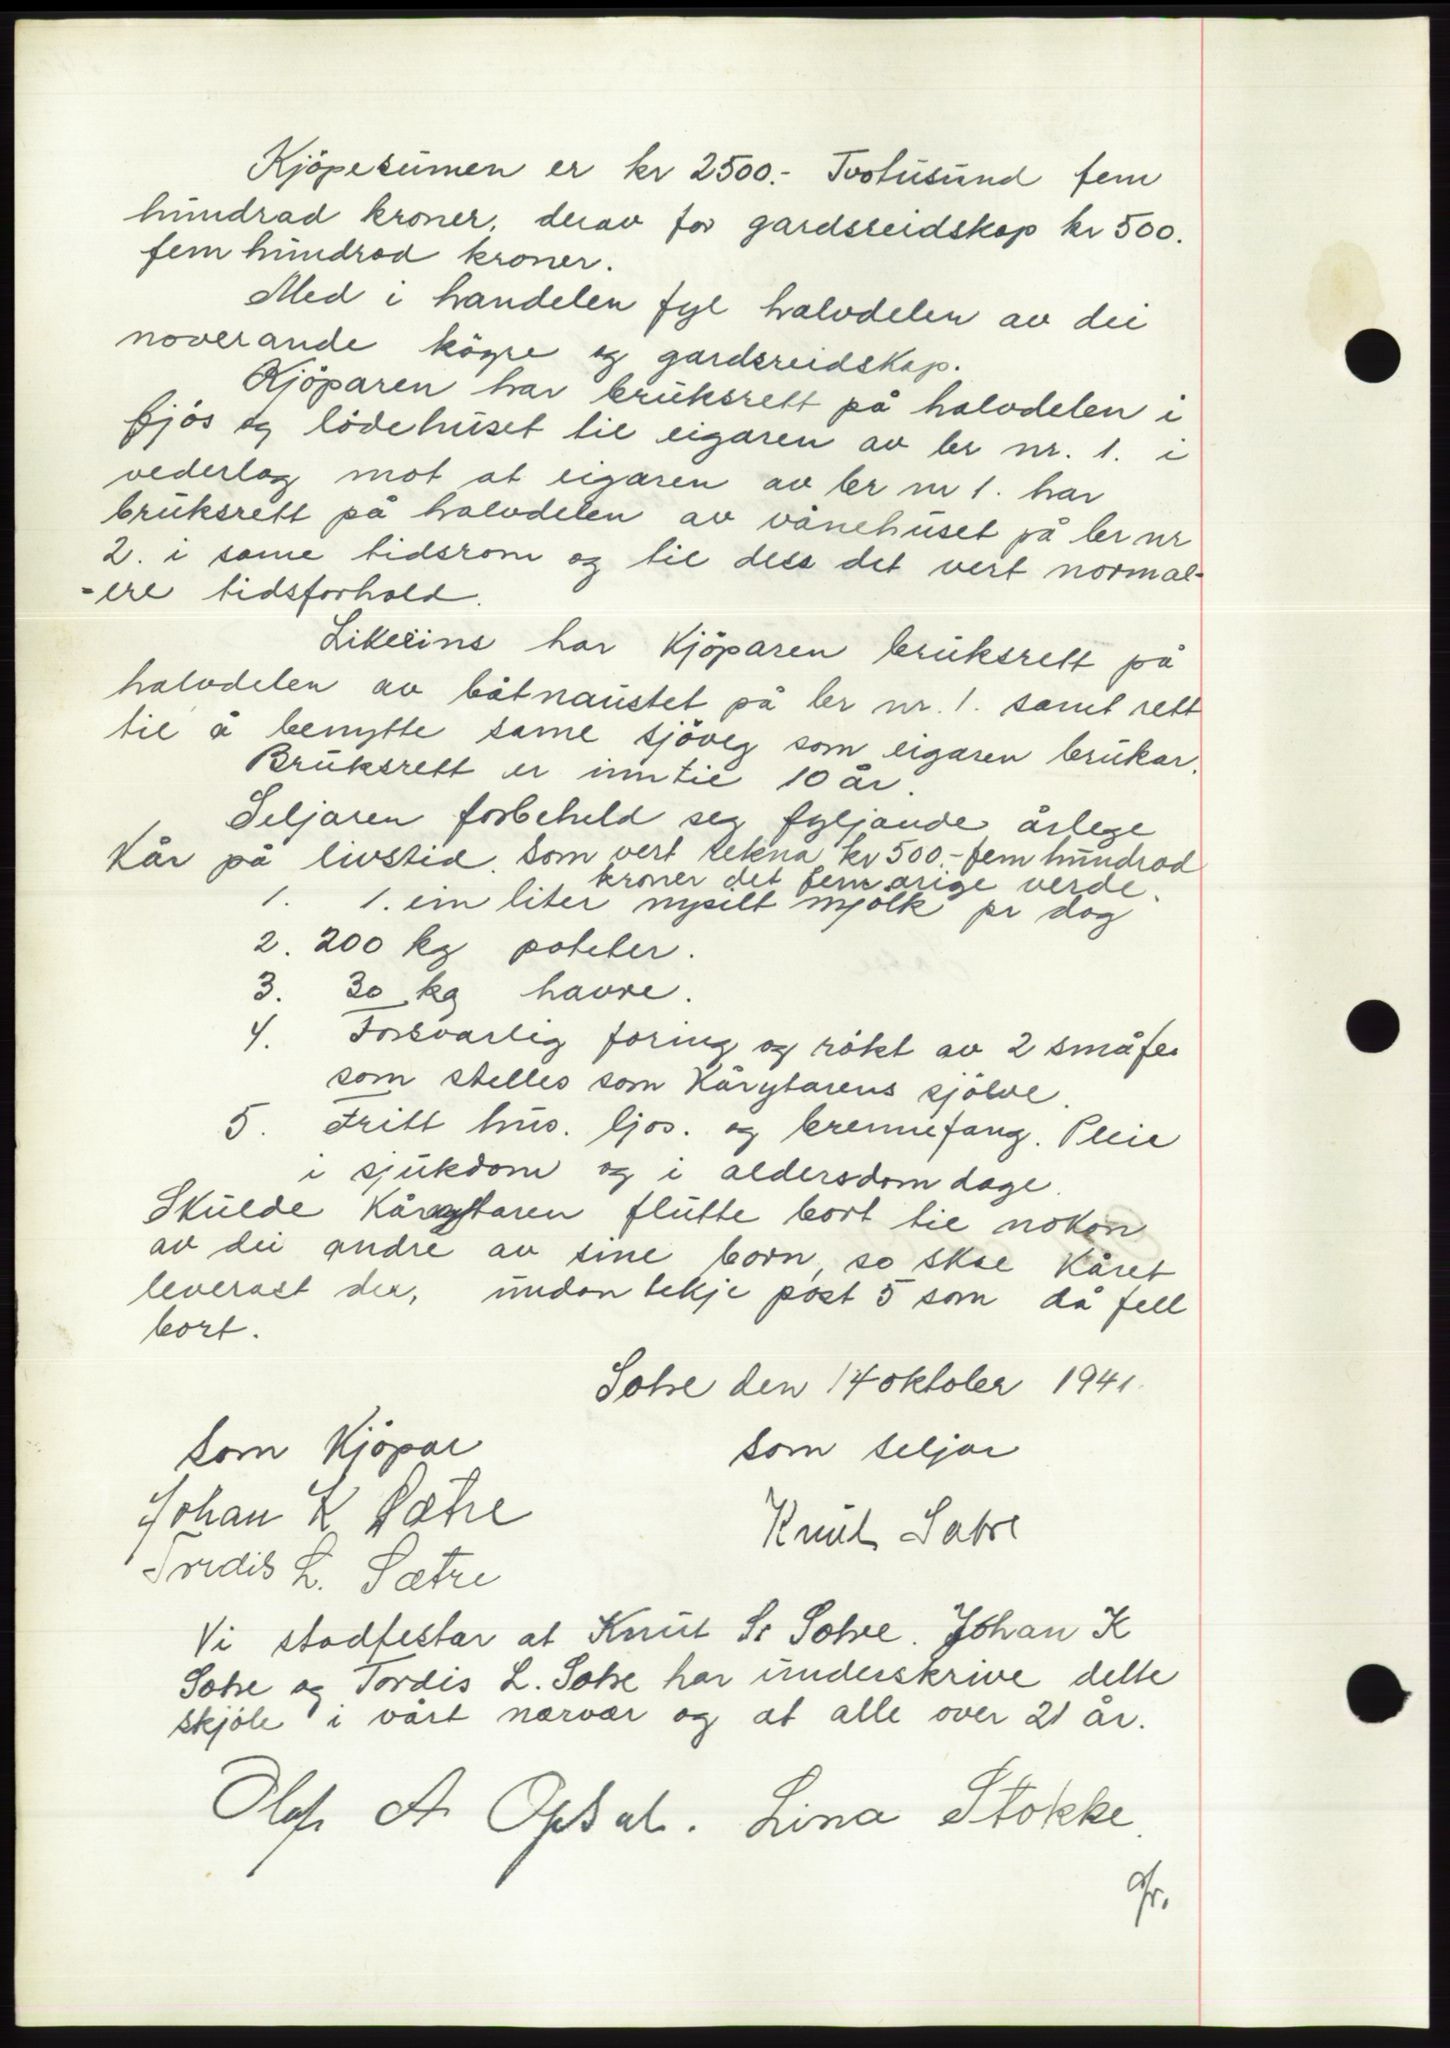 Kjöpesúmen er kr 2500.- Tvotúsúnd fem
húndrad kroner, derav for gardsreidskap kr 500.
fem húndrad kroner.
Med i handelen fyl halvdelen av dei
noverande köyre og gardsreidskap.
Kjöparen har brúksrett på halvdelen i
fjös og lödehúset til eigaren av br nr. 1. i
vederlag mot at eigaren av br nr 1. har
brúksrett på halvdelen av vånehúset på br nr
2. i same tidsrom og til dess det vert normal-
-ere tidsforhold.
Likeeins har Kjöparen brúksrett på
halvdelen av båtnaústet på br nr. 1. samt rett
til å benytte same sjöveg som eigaren brúkar.
Brúksrett er inntil 10 år.
Seljaren forbeheld seg fyljande årlege
Kår på livstid. som vert rekna kr 500.- fem húndrad
kroner det femårige verde.
1. 1. ein liter nysilt mjölk pr dag
2. 200 kg poteter.
3. 30 kg havre.
4. Forsvarlig foring og rökt av 2 småfe.
som stelles som Kårytarens sjölve.
5. Fritt hús. ljos. og brennefang. Pleie
i sjúkdom og i aldersdom dage.
Skúlde Kårytaren flútte bort til nokon
av dei andre av sine born, so skal Kåret
leverast der, úndantekje post 5 som då fell
bort.
Sætre den 14 oktober 1941.
Som Kjöpar som seljar
Johan K Sætre Knút Sætre
Tordis L. Sætre
Vi stadfestar at Knút S. Sætre. Johan K
Sætre og Tordis L. Sætre har únderskrive dette
skjöte i vårt nærvær og at alle over 21 år.
Olaf A Opsal. Lina Stokke.